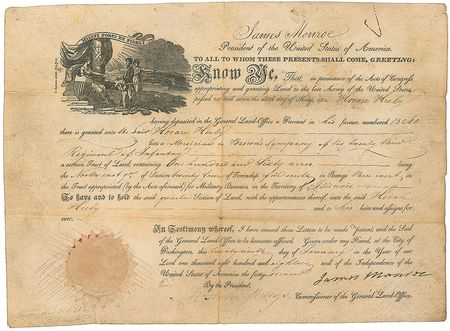 James Monroe
President of the United States of America.
TO ALL TO WHOM THESE PRESENTS SHALL COME, GREETING:
Know Ye, That, in pursuance of the Acts of Congress
appropriating and granting Land to the late Army of the United States,
passed on and since the sixth day of May
having deposited in the General Land-Office a Warrant in his favour, numbered
there is granted unto the said Horace
a Musician in Company of the
Regiment of Infantry
a certain Tract of Land, containing One hundred and Sixty acres being
the North east of Section twenty four of Township in Range
the Tract appropriated (by the Acts aforesaid) for Military Bounties, in the Territory of Illinois
To have and to hold the said quarter Section of Land, with the appurtenances thereof, unto the said Horace
and to his heirs and assigns for
ever.
In Testimony whereof, I have caused these Letters to be made Patent, and the Seal
of the General Land Office to be hereunto affixed. Given under my Hand, at the City of
Washington, this day of January in the Year of our
Lord one thousand eight hundred and and of the Independence of the
United States of America the forty
James Monroe
By the President,
Commissioner of the General Land-Office.